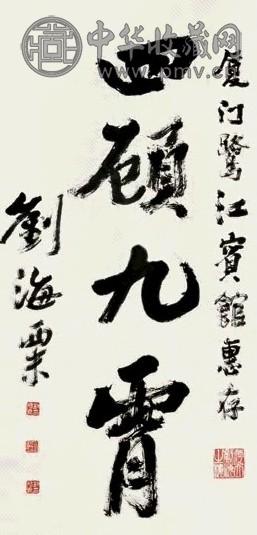 中华收藏网
www.pmv.cn
厦门鹭江賓館惠存
四顾九霄
劉海粟